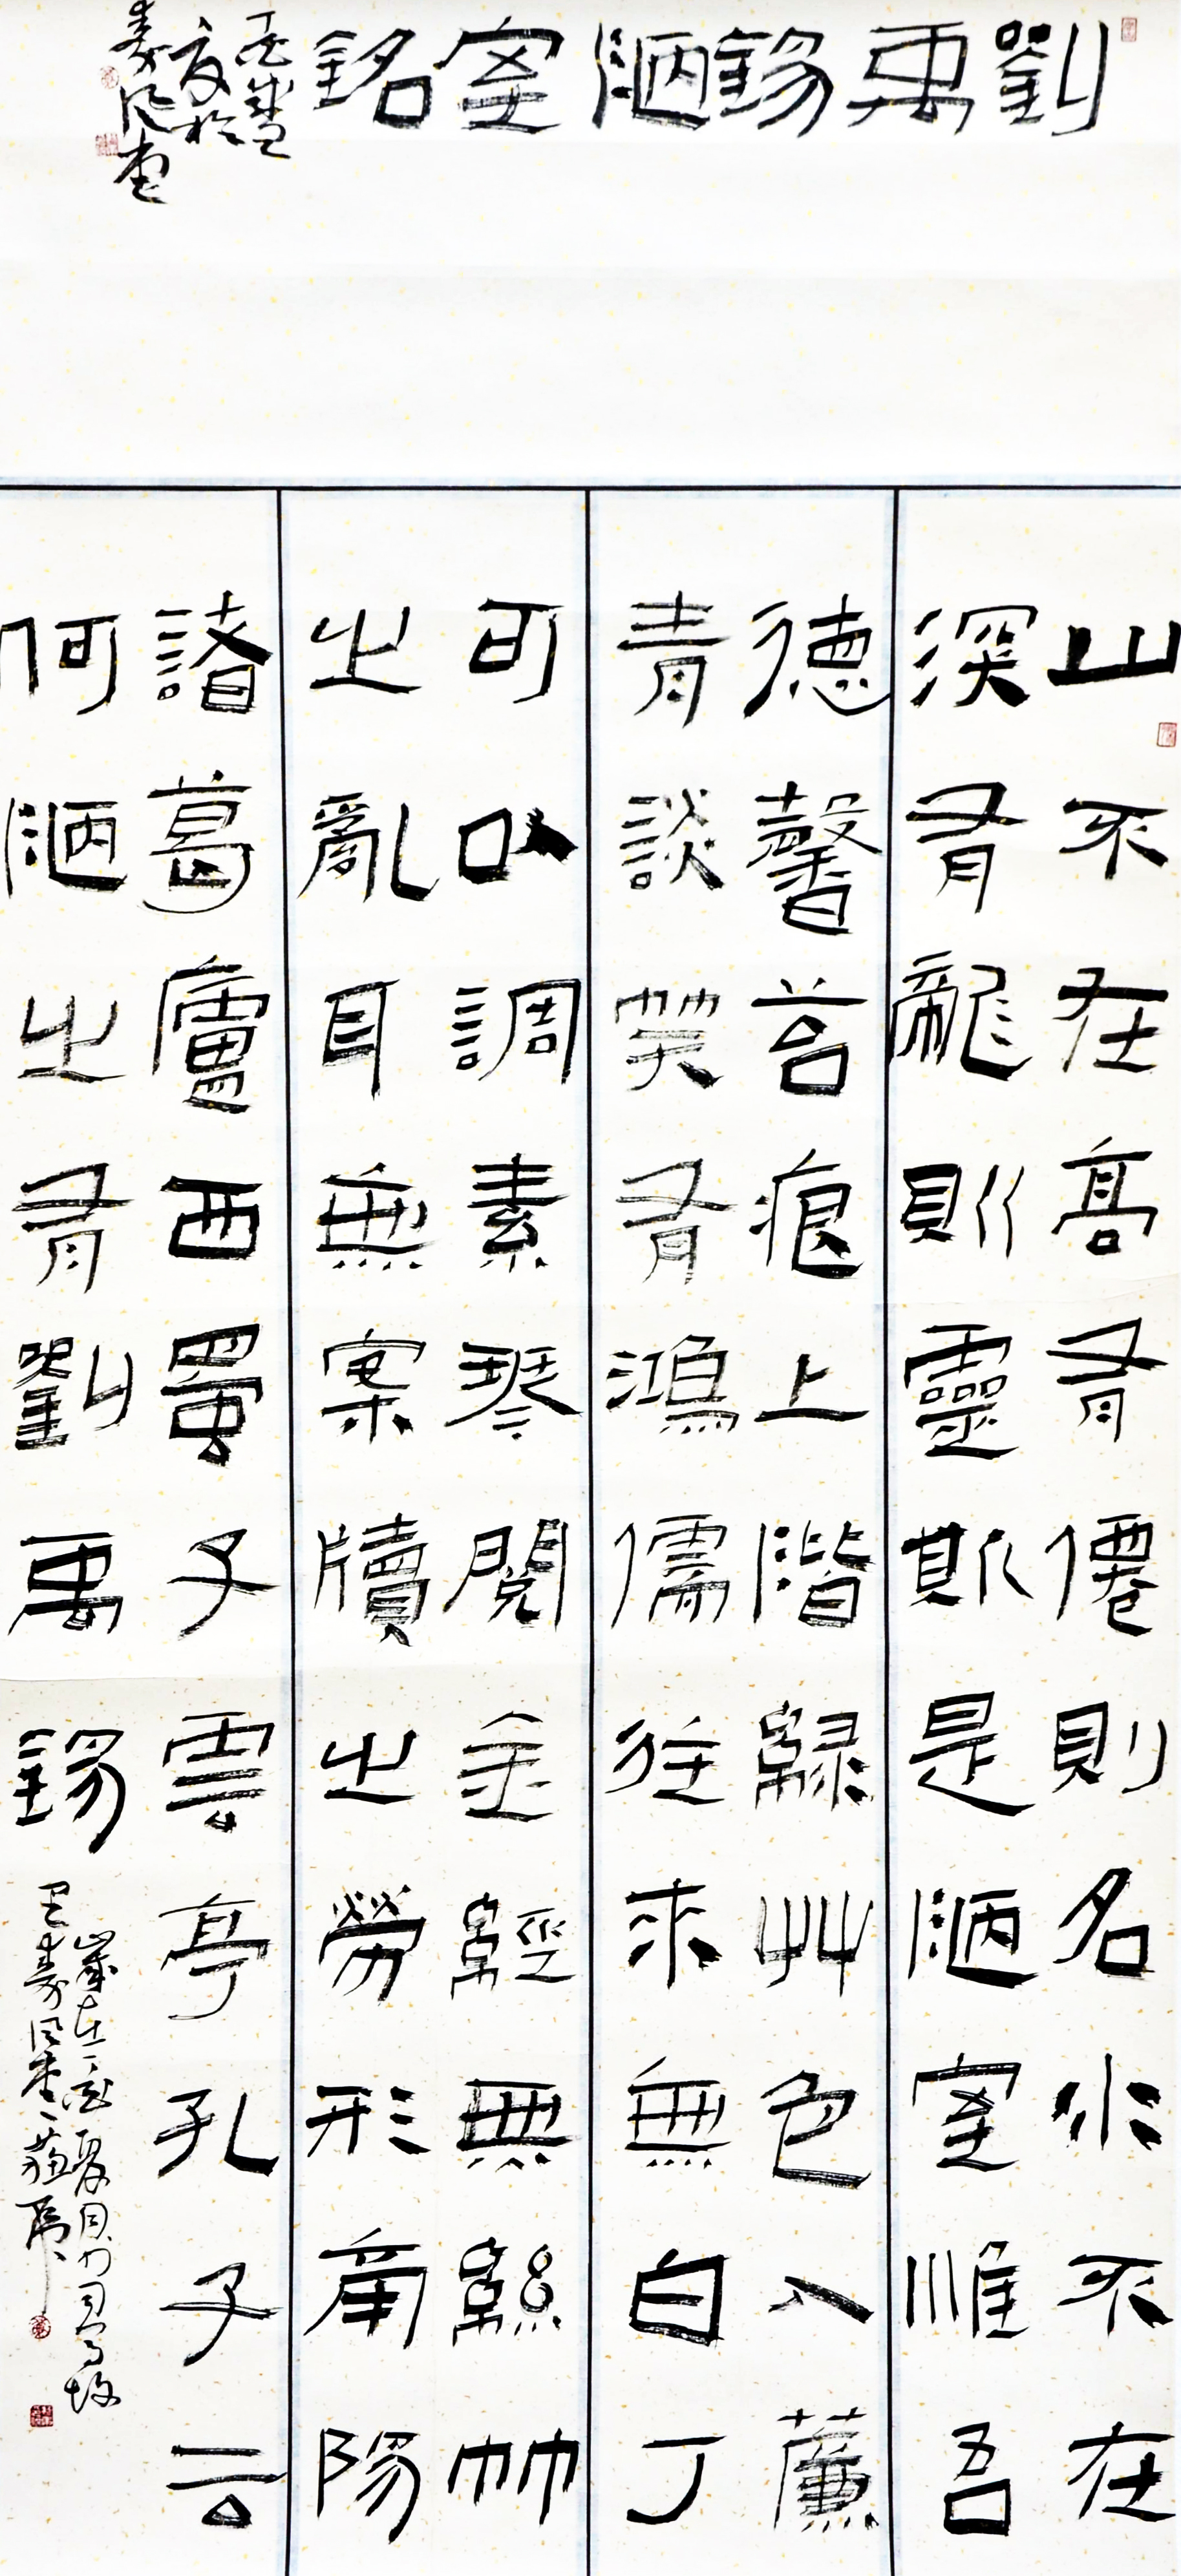 劉禹錫陋室銘
山不在高有僊則名水不在
深有龍則靈斯是陋室惟吾
德馨苔痕上階綠艸色入薕
青談笑有鴻儒往來無白丁
可以調素琴閱金經無絲竹
之亂耳無案牘之勞形南陽
諸葛廬西蜀子雲亭孔子云
何陋之有劉禹錫
歲在